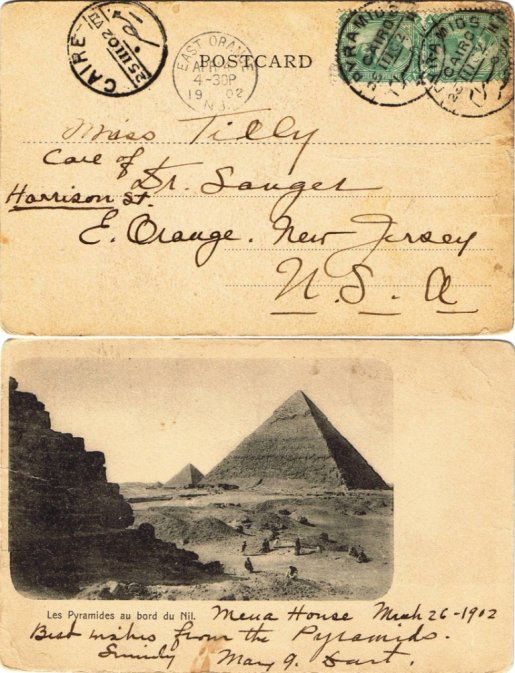 CAIRE
25 III 02
EAST ORANGE
4-30P
19 02
N.J.
POSTCARD
PYRAMIDS
CAIRO
PYRAMIDS
CAIRO
Miss Tilly
Care of
Dr. Sanger
Harrison St.
E. Orange. New Jersey
U.S.A
Les Pyramides au bord du Nil.
Mena House March 26-1902
Best wishes from the Pyramids.
Mary Dart.